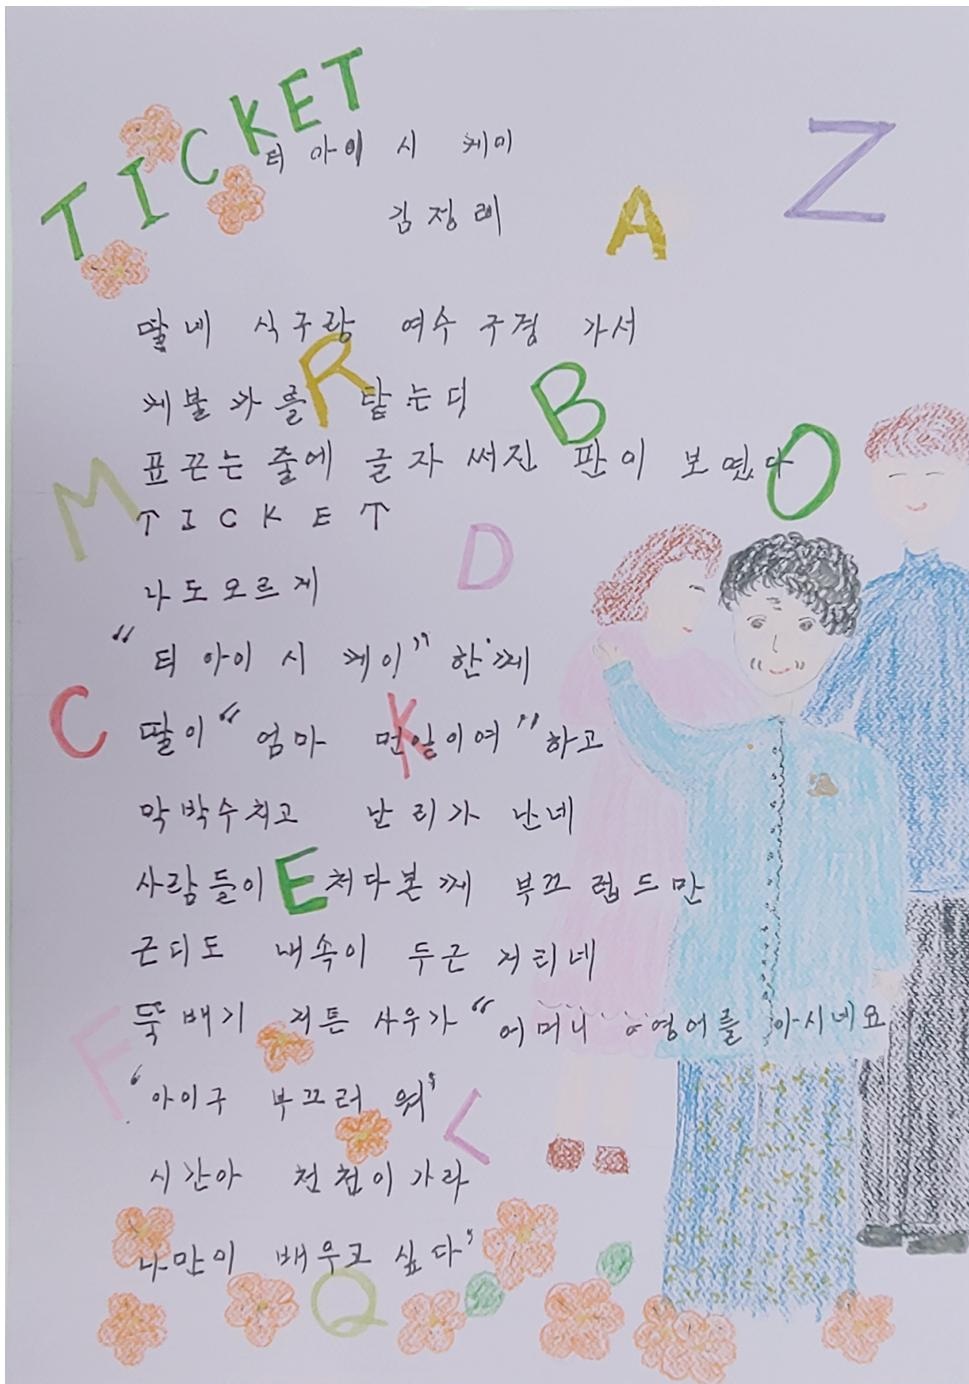 TICKET
티 아이 시 케이
김정례
Z
A
딸네 식구랑 여수 구경 가서
케블카를 탔는디
R
B
표끈는 줄에 글자 써진 판이 보였다
O
M
T I C K E T
D
나도모르게
"티 아이 시 케이" 한께
C
K
딸이 "엄마 먼일이여" 하고
막박수치고 난리가 난네
사람들이 처다본께 부끄럽드만
E
근디도 내속이 두근 거리네
뚝배기 가튼 사우가 "어머니 영어를 아시네요
F
"아이구 부끄러 워"
L
시간아 천천이가라
나만이 배우고 싶다"
Q